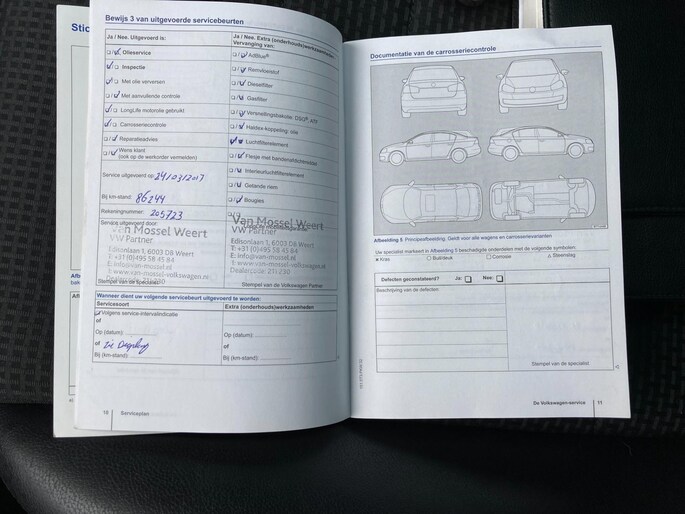 Stic
Bewijs 3 van uitgevoerde servicebeurten
Ja / Nee. Uitgevoerd is:
Olieservice
Inspectie
Met olie verversen
Met aanvullende controle
LongLife motorolie gebruikt
Carrosseriecontrole
Reparatieadvies
Wens klant
(ook op de werkorder vermelden)
Service uitgevoerd op 24/03/2017
Bij km-stand: 86244
Rekeningnummer: 205723
Service uitgevoerd door:
Ja / Nee. Extra (onderhouds)werkzaamheden
Vervanging van:
AdBlue®
Remvloeistof
Dieselfilter
Gasfilter
Versnellingsbakolie: DSG®,
Haldex-koppeling: olie
Luchtfilterelement
Flesje met bandenafdichtmiddel
Interieurluchtfilterelement
Getande riem
Bougies
Van Mossel Weert
VW Partner
Edisonlaan 1, 6003 DB Weert
T: +31 (0)495 58 41 84
E: info@van-mossel.nl
I: www.van-mossel-volkswagen.nl
Dealercode: 211 230
Van Mossel Weert
VW Partner
Edisonlaan 1, 6003 DB Weert
T: +31 (0)495 58 41 84
E: info@van-mossel.nl
I: www.van-mossel-volkswagen.nl
Dealercode: 211 230
Stempel van de Specialist
Stempel van de Volkswagen Partner
Wanneer dient uw volgende servicebeurt uitgevoerd te worden:
Servicesoort
Volgens service-intervalindicatie
of
Op (datum):
of Zie Display
Bij (km-stand):
Extra (onderhouds)werkzaamheden
Op (datum):
of
Bij (km-stand):
10 Serviceplan
Documentatie van de carrosseriecontrole
Afbeelding 5 Principeafbeelding: Geldt voor alle wagens en carrosserievarianten
Uw specialist markeert in Afbeelding 5 beschadigde onderdelen met de volgende symbolen:
× Kras
O Buil/deuk
◇ Corrosie
△ Steenslag
Defecten geconstateerd?
Ja:
Nee:
Beschrijving van de defecten:
Stempel van de specialist
De Volkswagen-service 11